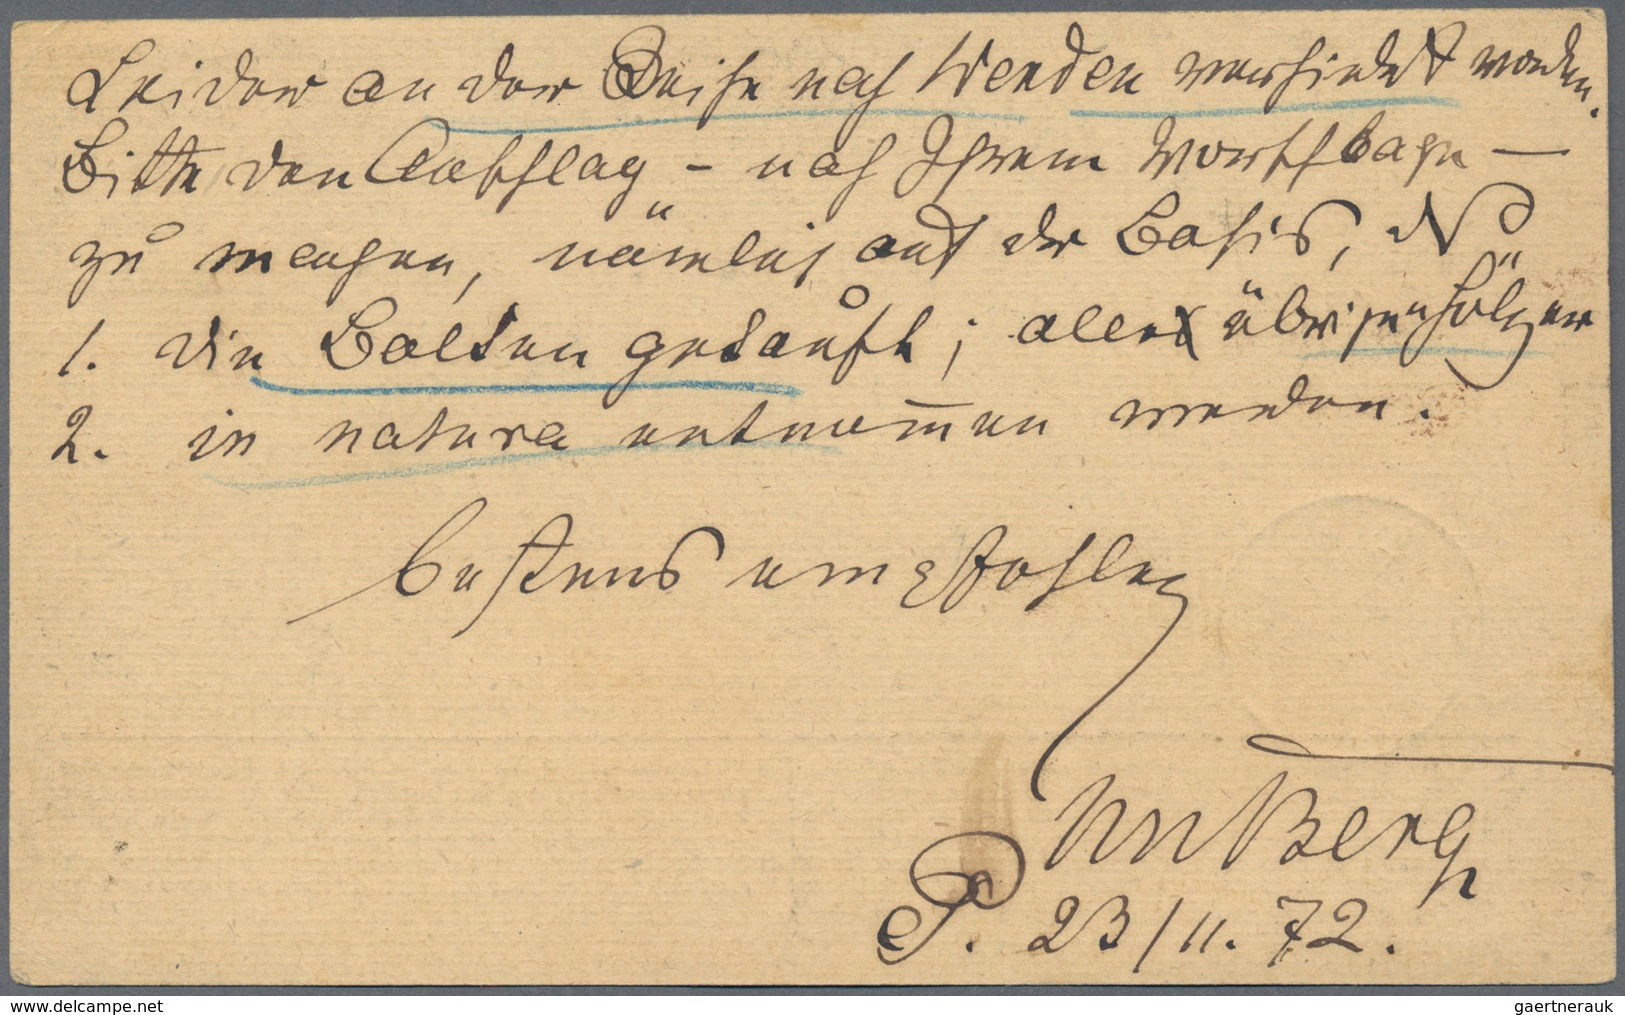 Leider an der Reise nach Werden verhindert worden.
Bitte den Anschlag – nach Ihrem Vorschlage –
zu machen, nämlich auf der Basis, daß
1. die Balken gekauft; alle übrigen Hölzer
2. in natura entnom̄en werden.
bestens empfohlen
Berg
P. 23/11. 72.
gaertnerauk
www.delcampe.net